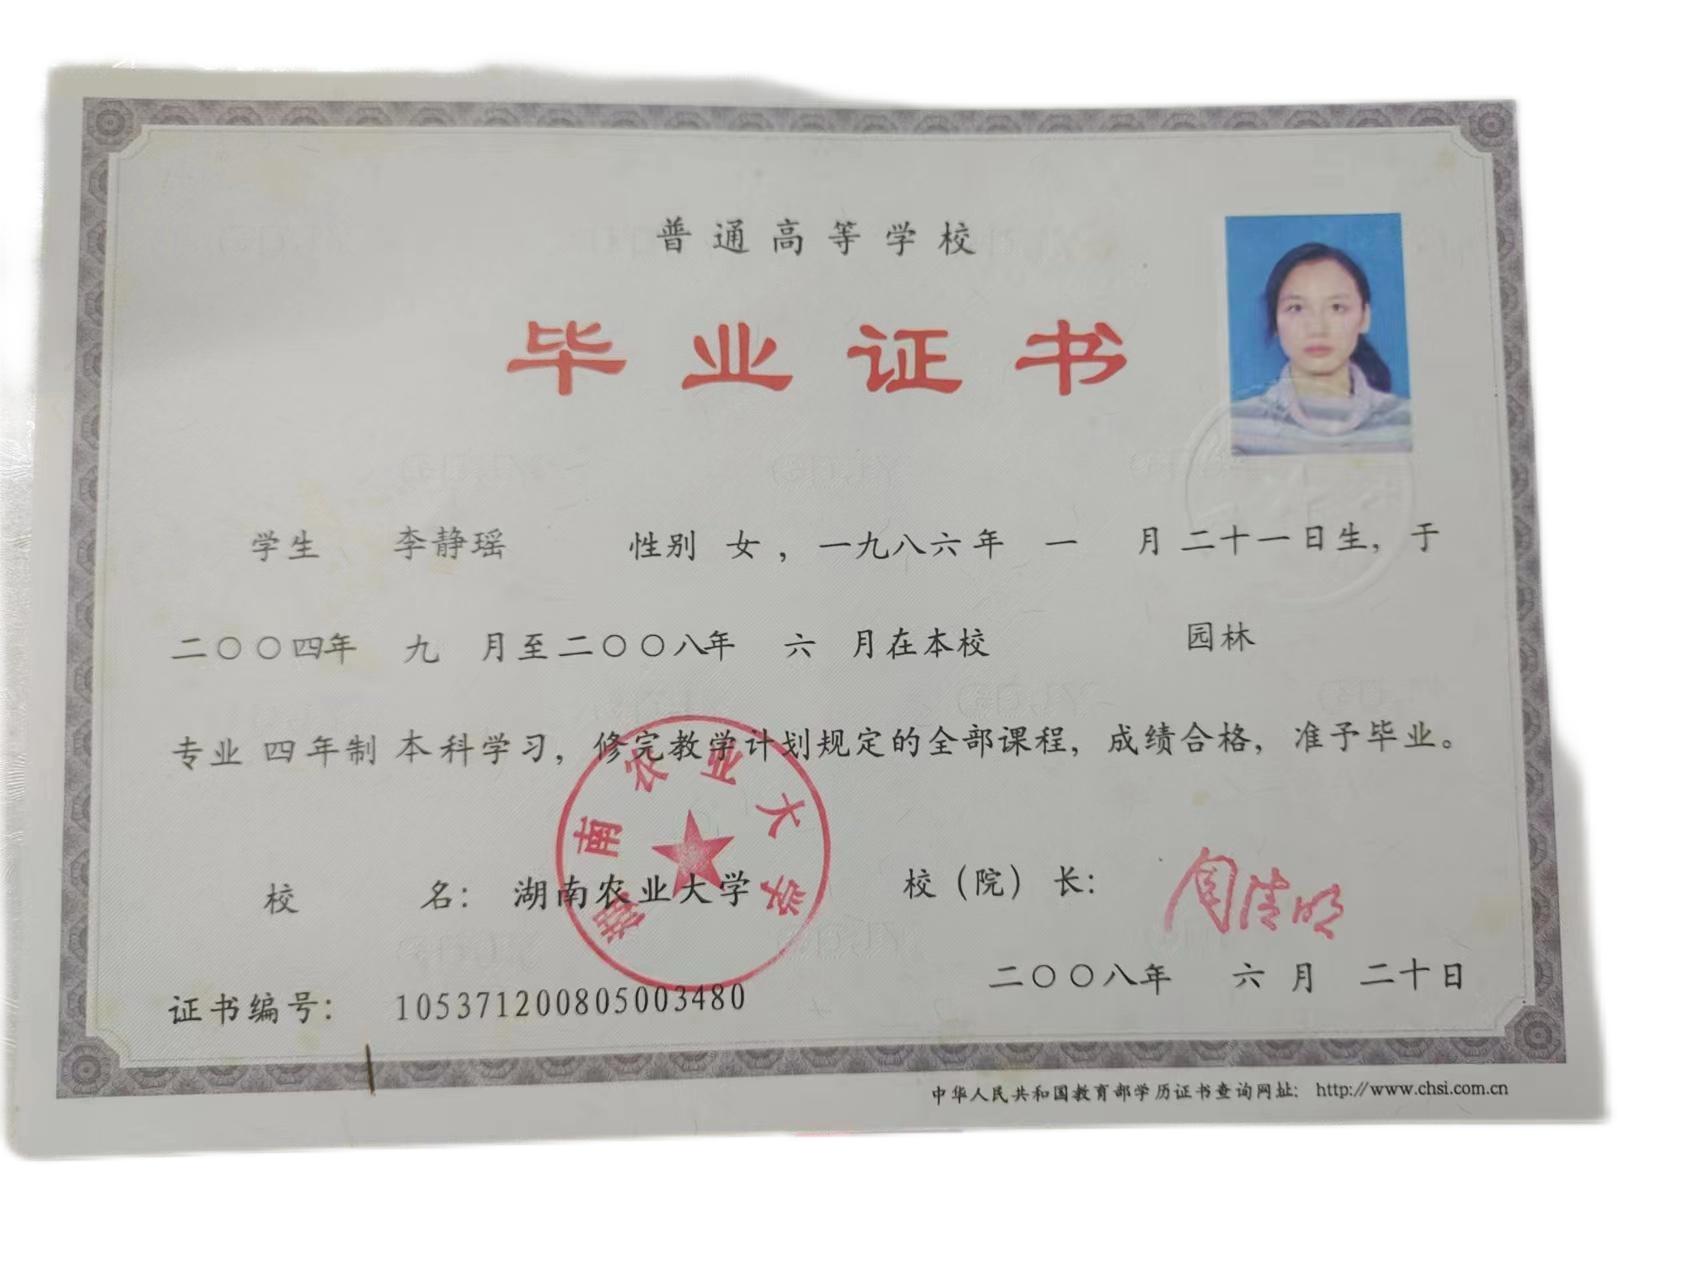 普通高等学校
毕业证书
学生 李静瑶 性别 女，一九八六年 一 月二十一日生，于
二〇〇四年 九 月至二〇〇八年 六 月在本校 园林
专业 四年制 本科学习，修完教学计划规定的全部课程，成绩合格，准予毕业。
湖南农业大学
校 名：湖南农业大学 校（院）长：周清明
二〇〇八年 六月 二十日
证书编号： 105371200805003480
中华人民共和国教育部学历证书查询网址： http://www.chsi.com.cn